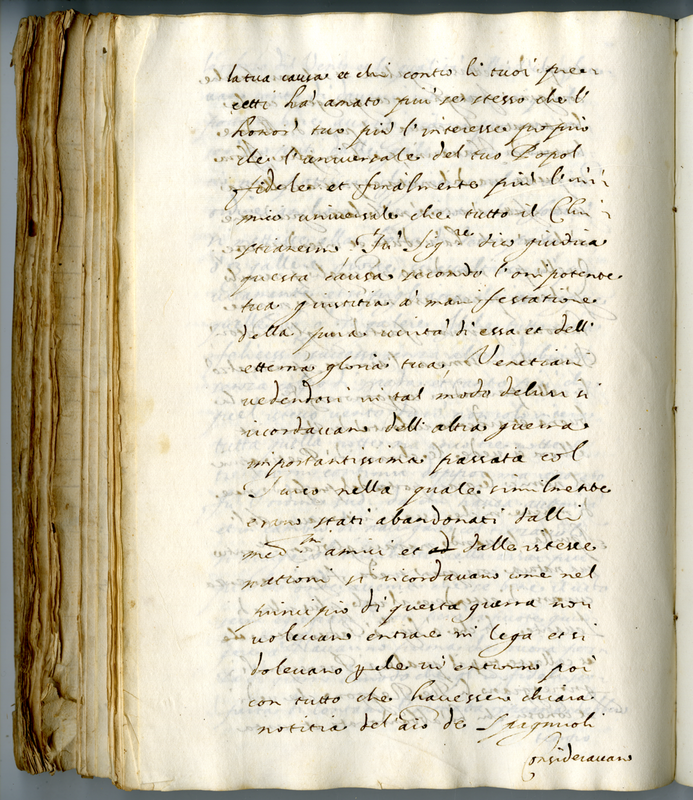 la tua causa et chi contro li tuoi prec-
cetti há amato piu se stesso che l'
honor tuo piu l'interesse proprio
che l'universale del tuo Popol
fidele et finalmente piu l'ini-
mico universale che tutto il Chri-
stianesmo Tú Sig.re dio giudica
questa causa secondo l'onnipotente
tua giustitia á manifestatione
della pura veritá di essa et dell'
etterna gloria tua Venetiani
vedendosi in tal modo delusi si
ricordavano dell'altra guerra
importantissima passata col
Turco nella quale similmente
erano stati abandonati dalli
med.mi amici et dalle istesse
nationi si ricordavano come nel
principio di questa guerra non
volevano entrare in lega et si
dolevano che vi entrorno poi
con tutto che havessero chiara
notitia del de Spagnuoli
Consideravano